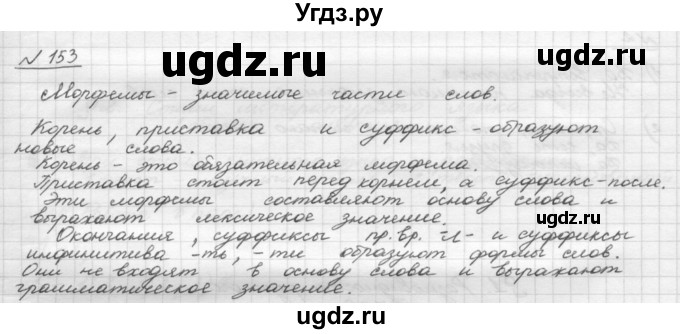 Угдз.ру
№ 153
Морфемы - значимые части слов.
Корень, приставка и суффикс - образуют
новые слова.
Корень - это обязательная морфема.
Приставка стоит перед корнем, а суффикс - после.
Эти морфемы составляют основу слова и
выражают лексическое значение.
Окончания, суффиксы пр.вр. -л- и суффиксы
инфинитива -ть, -ти образуют формы слов.
Они не входят в основу слова и выражают
грамматическое значение.
ugdz.ru
ugdz.ru
ugdz.ru
ugdz.ru
ugdz.ru
ugdz.ru
ugdz.ru
ugdz.ru